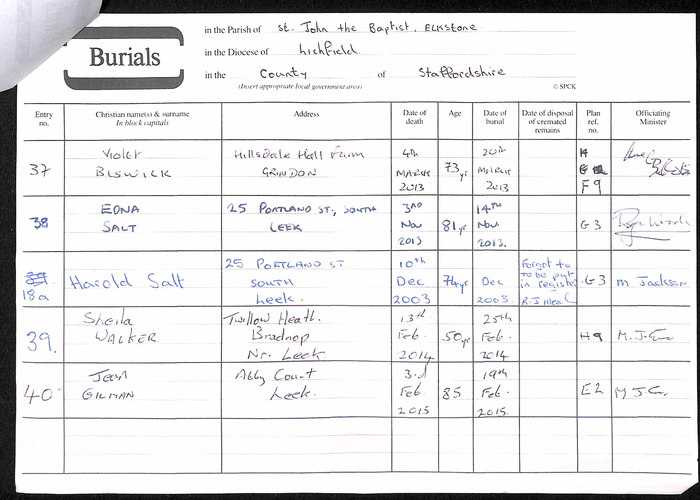 Burials
in the Parish of St. John the Baptist, Elkstone
in the Diocese of Lichfield
in the County of Staffordshire
(Insert appropriate local government area)
© SPCK
Entry no. Christian name(s) & surname In block capitals Address Date of death Age Date of burial Date of disposal of cremated remains Plan ref. no. Officiating Minister
37 Violet BESWICK Hillsdale Hall Farm GRINDON 4th MARCH 2013 73 yr 20th MARCH 2013 F9
38 EDNA SALT 25 PORTLAND ST, SOUTH LEEK 3RD Nov 2013 81 yr 14TH Nov. 2013. G3
18a Harold Salt 25 PORTLAND ST SOUTH Leek. 10th Dec 2003 74yr Dec 2003. Forgot to to be put in register G3 M. Jackson
39. Sheila WALKER Bradnop Nr. Leek 13th Feb. 2014 50 yr 25th Feb. 2014 H9
40 Jean GILMAN Abby Court Leek. 3rd Feb 2015 85 19th Feb. 2015. E2